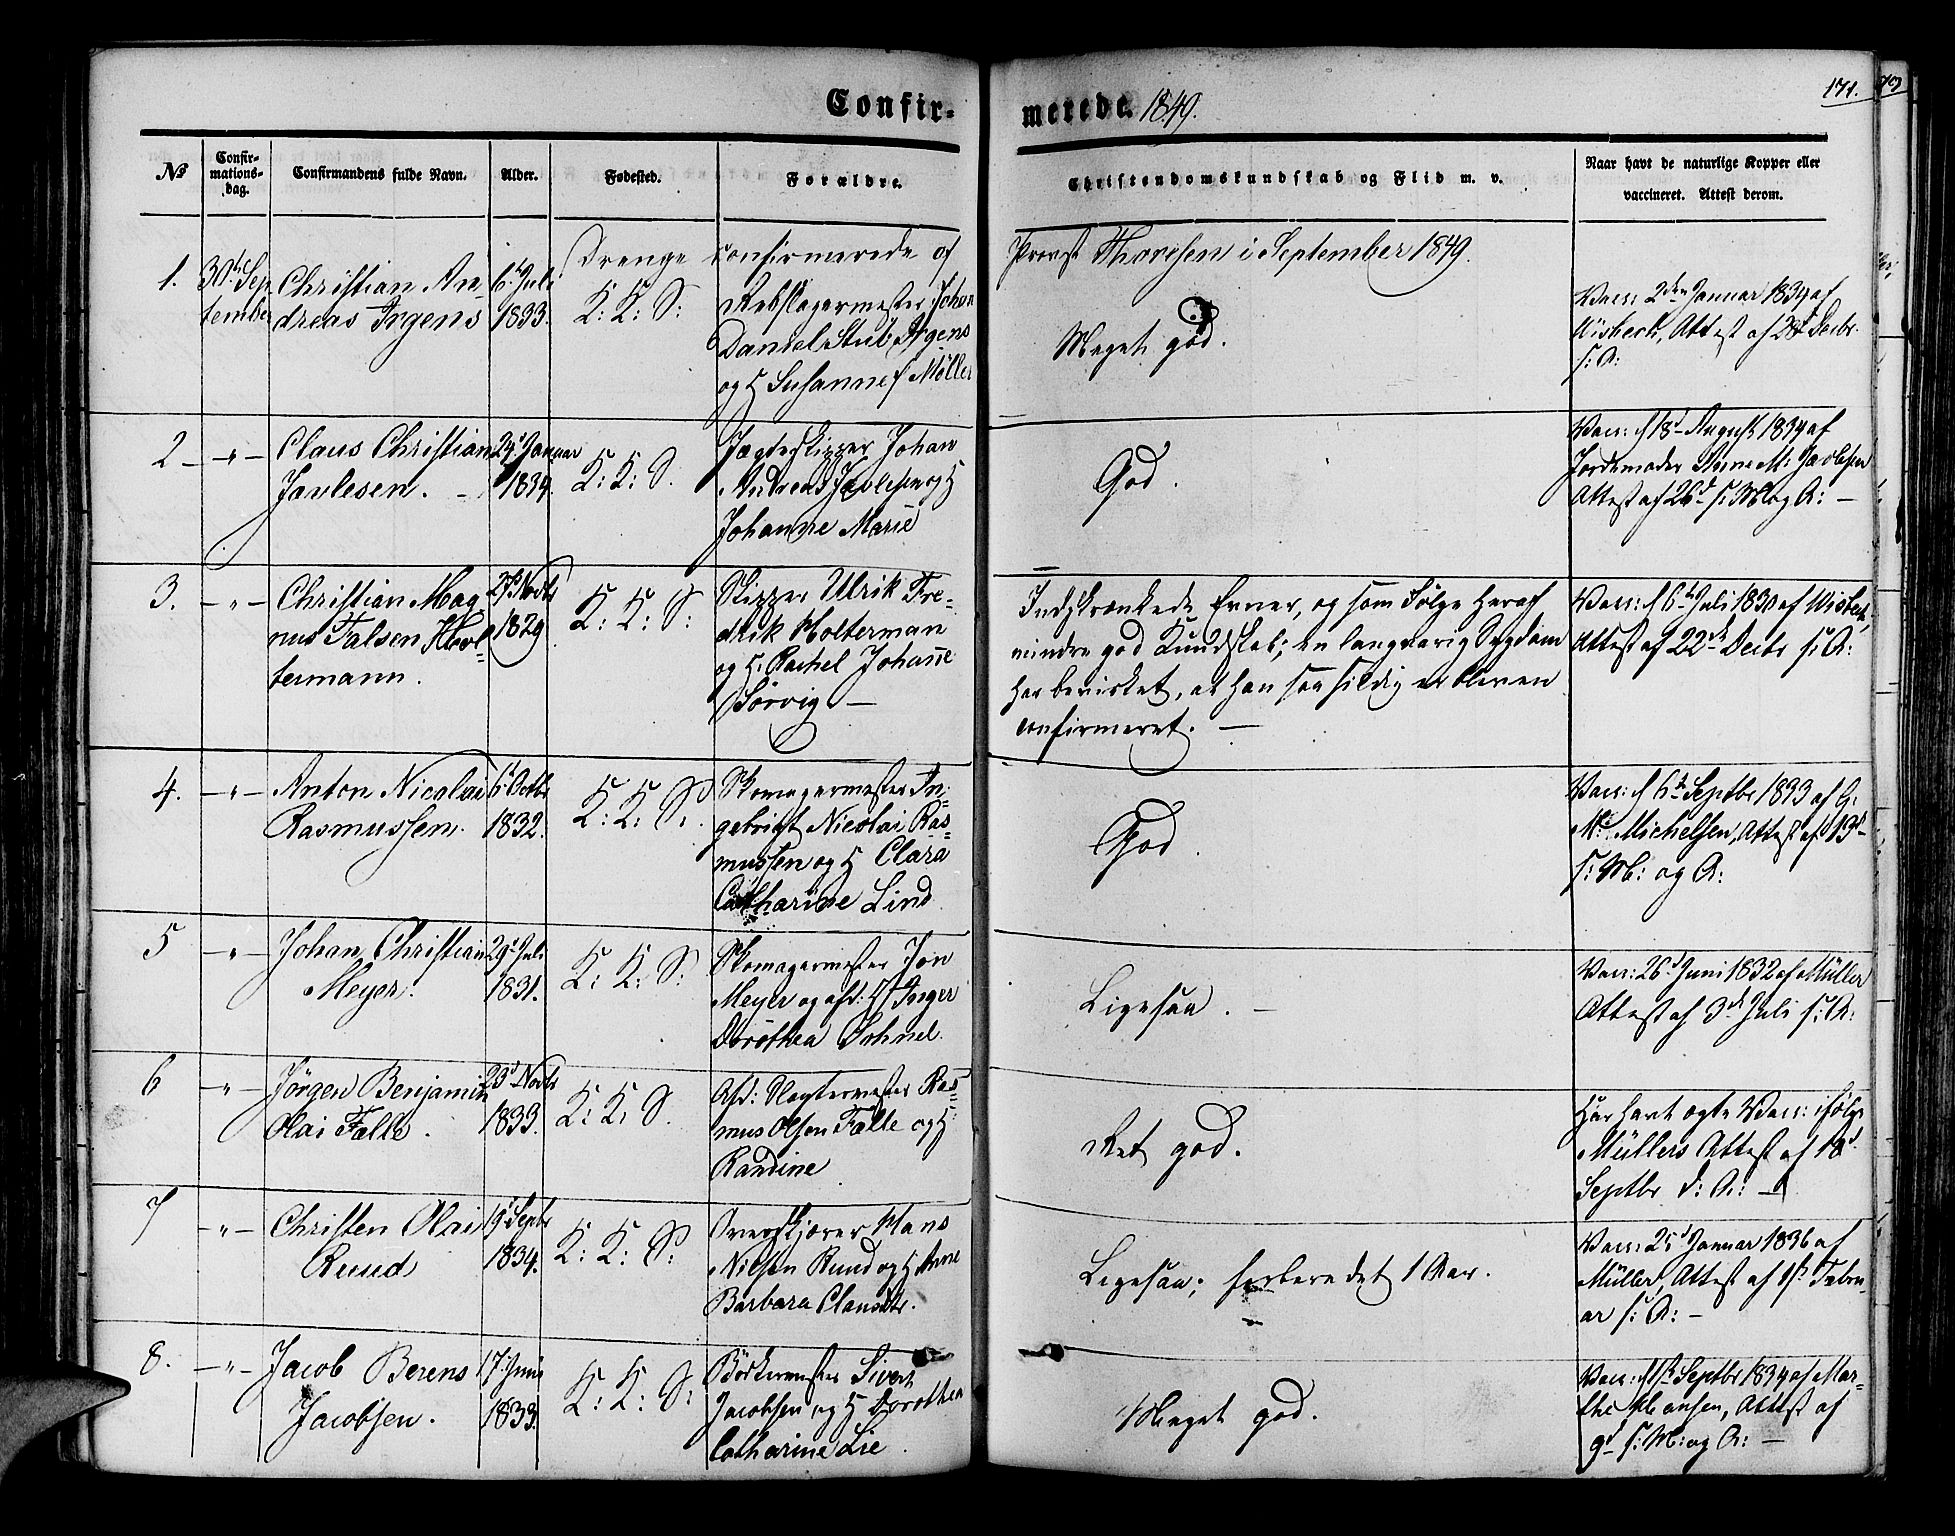 Confir- merede. 1849.
171.
No
Confir-
mations-
dag.
Confirmandens fulde Navn.
Alder.
Fødested.
Forældre.
Christendomskundskab og Flid m. v.
Naar havt de naturlige Kopper eller
vaccineret. Attest derom.
Drenge confirmerede af Provst Thoresen i September 1849.
1.
30te Sep
tember
Christian An
dreas Irgens
6t Juli
1833.
K: K: S:
Rebslagermester Johan
Daniel Stub Irgens
og H Susanne f Møller
Meget god.
Vacc: 2den Januar 1834 af
Wisbech, Attest af Decbr.
s: A:
2 -
- " -
Claus Christian
Javlesen. -
Januar
1834.
K: K: S.
Jægteskipper Johan
Andreas Javlesen og H
Johanne Marie
God.
Vacc: d 18d August 1834 af
Jordemoder Anne M: Javlesen
Attest af 26d s: M og A: -
3.
- " -
Christian Mag
nus Falsen Hol-
termann.
27d Novbr
1829
K: K: S:
Skipper Ulrik Fre-
drik Holterman
og H. Rachel Johanne
Sørvig -
Indskrænkede Evner, og som Følge heraf
mindre god Kundskab; en langvarig Sygdom
har bevirket, at han saa sildig er bleven
confirmeret. -
Vacc: d 6te Juli 1830 af Wisbech,
Attest af 22de Decbr s: A:
4.
- " -
Anton Nicolai
Rasmussen.
6t Octbr
1832.
K: K: S:
Skomagermester In-
gebrigt Nicolai Ras-
mussen og H Clara
Catharine Lind
God.
Vacc: d 6te Septbr 1833 af G.
M: Michelsen, Attest af 13d
s: M: og A:
5
- " -
Johan Christian
Meyer.
29d Juli
1831.
K: K: S:
Skomagermester Jon
Meyer og afd: H Inger
Dorothea Sohnel.
Ligesaa. -
Vacc: 26d Juni 1832 af Müller
Attest af 3de Juli s: A:
6
- " -
Jørgen Benjamin
Olai Falle.
23d Novbr
1833.
K: K: S.
Afd: Slagtermester Ras-
mus Olsen Falle og H
Randine
Ret god.
Har havt ægte Vacc: ifølge
Müllers Attest af 18d
Septbr d: A: -
7
- " -
Christen Olai
Ruud
19d Septbr
1834.
K: K: S:
Overskjærer Hans
Nilsen Ruud og H Anne
Barbara Clausdtr.
Ligesaa; forberedet 1 Aar.
Vacc: 25d Januar 1836 af
Müller, Attest af 1st Febru-
ar s: A: -
8.
- " -
Jacob Berens
Jacobsen.
17d Juni
1833.
K: K: S:
Bødkermester Sivert
Jacobsen og H Dorothea
Catharine Lie.
Meget god.
Vacc: d 1st Septbr 1834 af Mar-
the Hansen, Attest af
9d s: M: og A: -